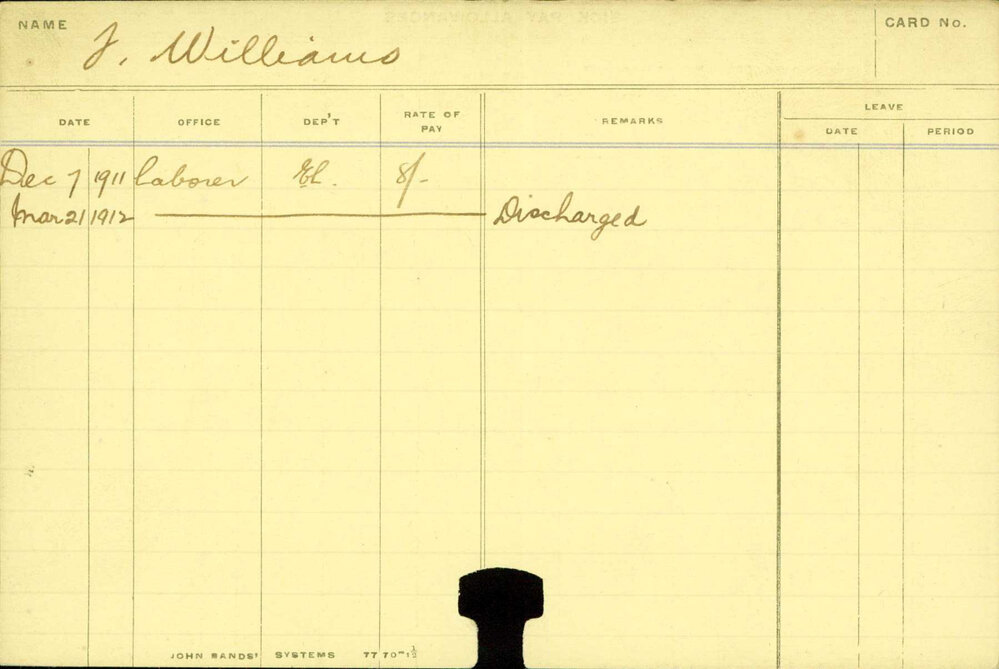 NAME J. Williams CARD No.
DATE OFFICE DEP'T RATE OF PAY REMARKS LEAVE
DATE PERIOD
Dec 7 1911 Laborer El. 8/-
Mar 21 1912 Discharged
JOHN SANDS' SYSTEMS